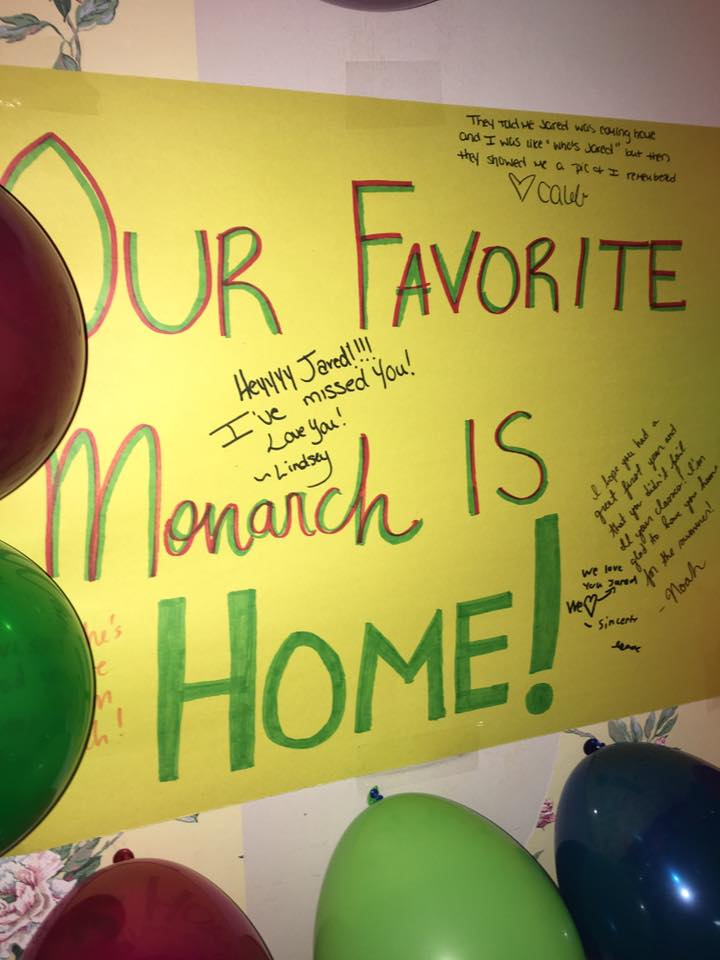 They told me Jared was coming home
and I was like "who's Jared" but then
they showed me a pic & I remembered
♡ Caleb
OUR FAVORITE
Heyyyy Jared!!!!
I've missed you!
Love you!
~ Lindsey
Monarch IS
HOME!
I hope you had a
great first year and
that you didn't fail
all your classes! I'm
glad to have you home
for the summer!
- Noah
We love
you Jared
We ♡
he's